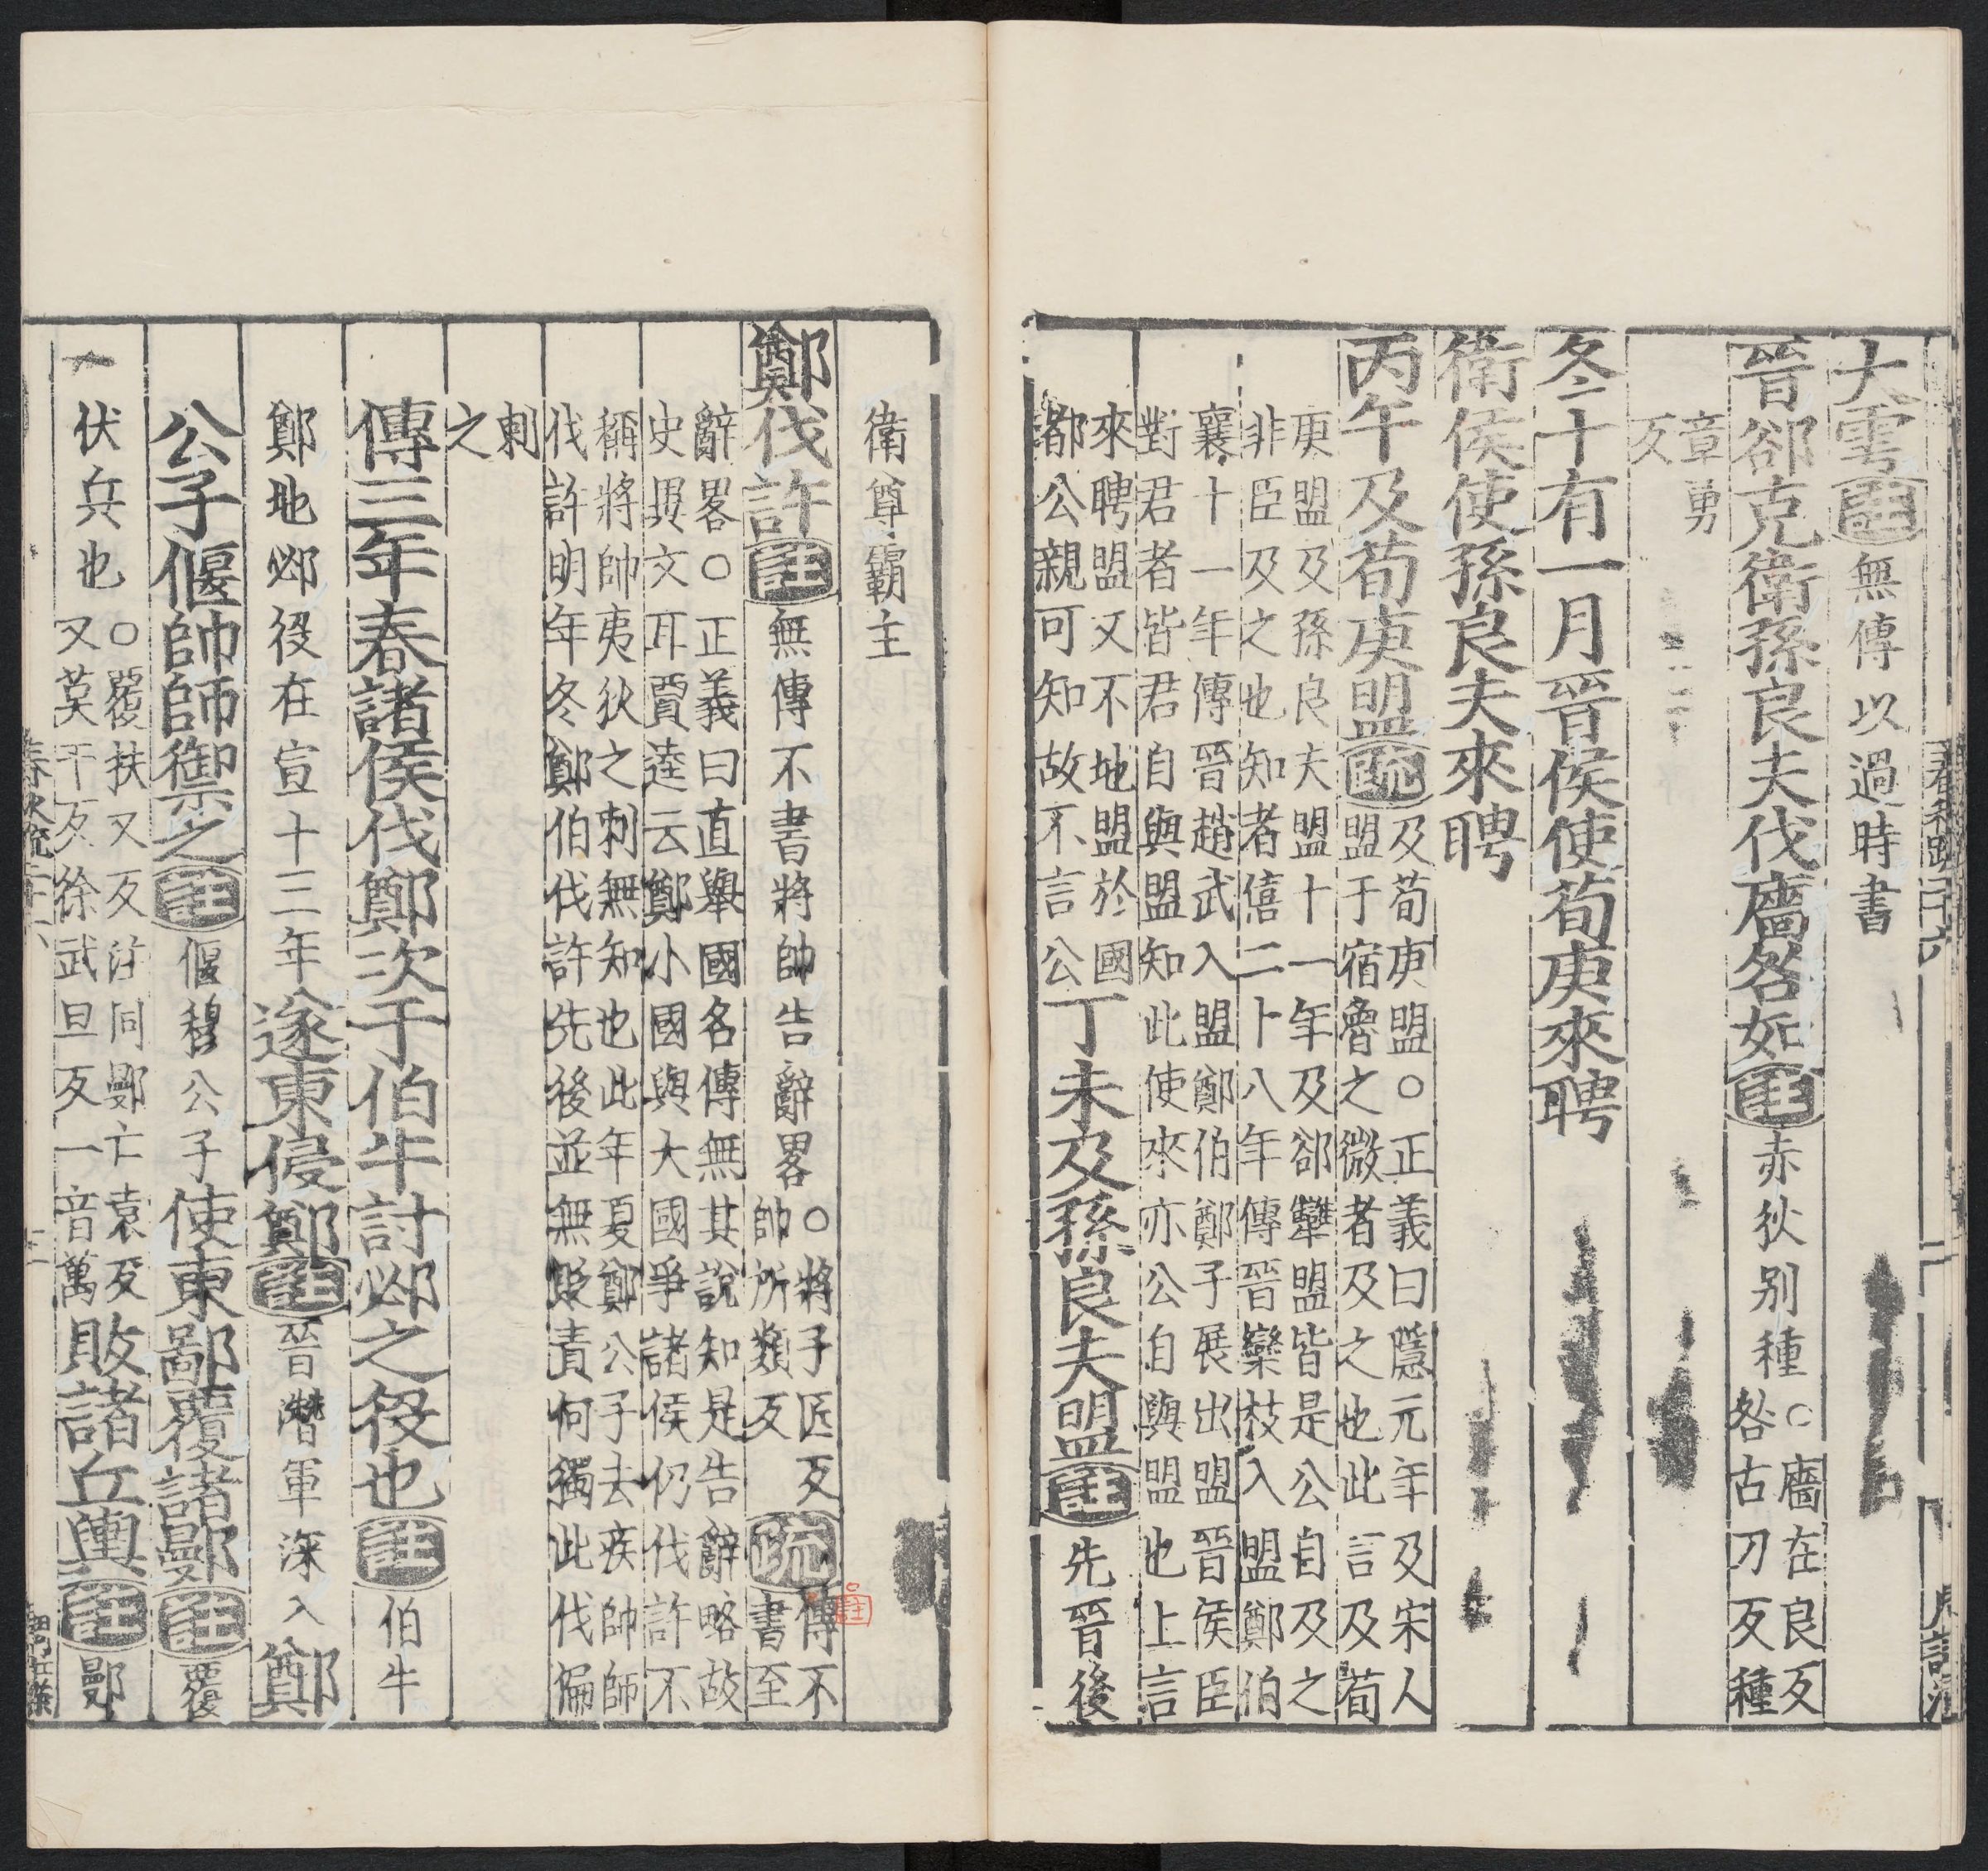 大雩註無傳以過時書
晉郤克衛孫良夫伐廧咎如註赤狄别種○廧在良反
咎古刀反種
章勇
反
冬十有一月晉侯使荀庚來聘
衛侯使孫良夫來聘
丙午及荀庚盟疏及荀庚盟○正義曰隱元年及宋人
盟于宿魯之微者及之也此言及荀
庚盟及孫良夫盟十一年及郤犨盟皆是公自及之
非臣及之也知者僖二十八年傳晉欒枝入盟鄭伯
襄十一年傳晉趙武入盟鄭伯鄭子展出盟晉侯臣
對君者皆君自與盟知此使來亦公自與盟也上言
來聘盟又不地盟於國
都公親可知故不言公
丁未及孫良夫盟註先晉後
衛尊霸主
鄭伐許註無傳不書將帥告辭畧○將子匠反
帥所類反
疏傳不
書至
辭畧○正義曰直舉國名傳無其說知是告辭略故
史異文耳賈逵云鄭小國與大國爭諸侯仍伐許不
稱將帥夷狄之刺無知也此年夏鄭公子去疾帥師
伐許明年冬鄭伯伐許先後並無貶責何獨此伐偏
刺
之
傳三年春諸侯伐鄭次于伯牛討邲之役也註伯牛
鄭地邲役在宣十三年遂東侵鄭註晉潛軍深入鄭
公子偃帥師御禦之註偃穆公子使東鄙覆諸鄤註覆
伏兵也○覆扶又反注同鄤亡袁反
又莫干反徐武旦反一音萬
敗諸丘輿註鄤
春秋疏二十六